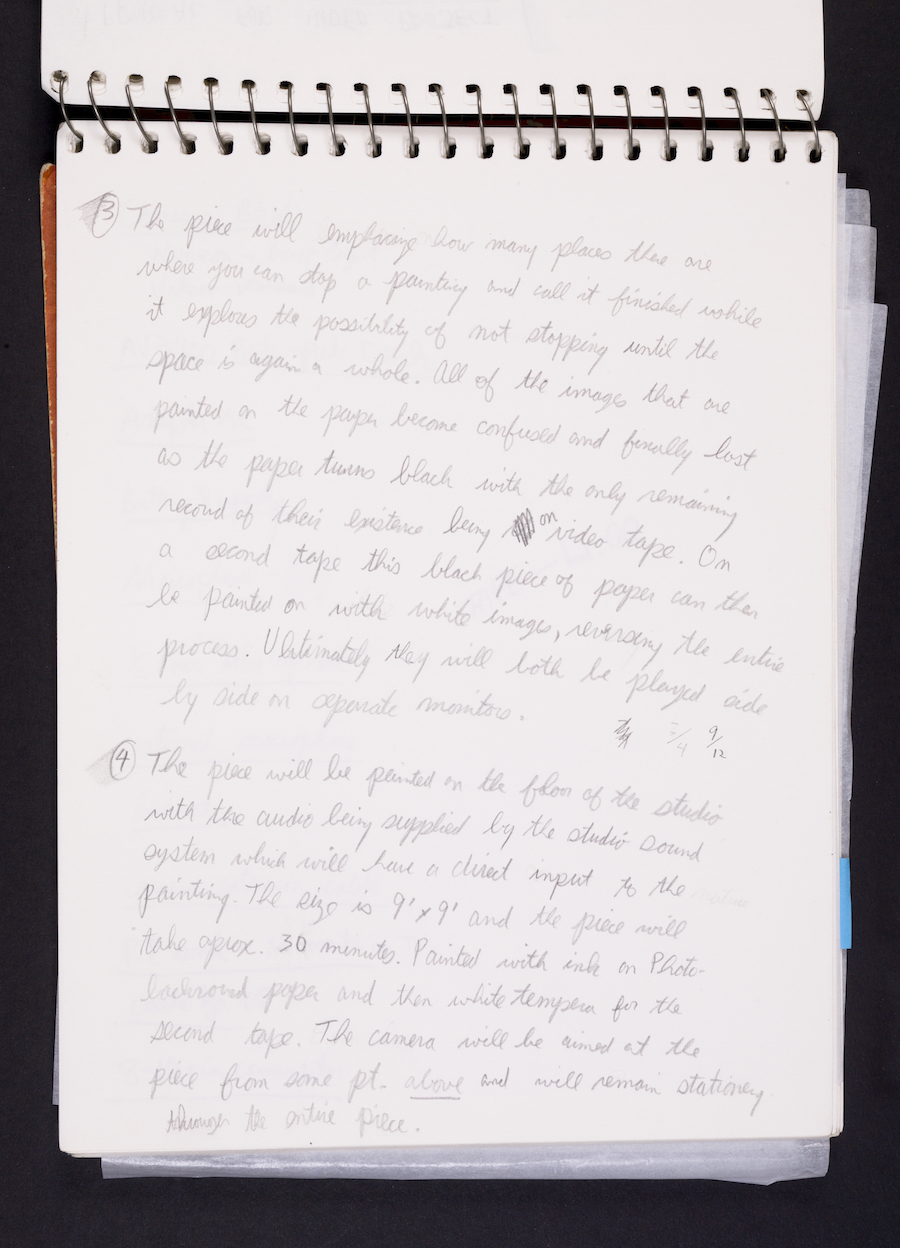 3 The piece will emphasize how many places there are
where you can stop a painting and call it finished while
it explores the possibility of not stopping until the
space is again a whole. All of the images that are
painted on the paper become confused and finally lost
as the paper turns black with the only remaining
record of their existence being on video tape. On
a second tape this black piece of paper can then
be painted on with white images, reversing the entire
process. Ultimately they will both be played side
by side on separate monitors.
9/12
4 The piece will be painted on the floor of the studio
with the audio being supplied by the studio sound
system which will have a direct input to the
painting. The size is 9' x 9' and the piece will
take aprox. 30 minutes. Painted with ink on Photo-
backround paper and then white tempera for the
second tape. The camera will be aimed at the
piece from some pt. above and will remain stationery
through the entire piece.